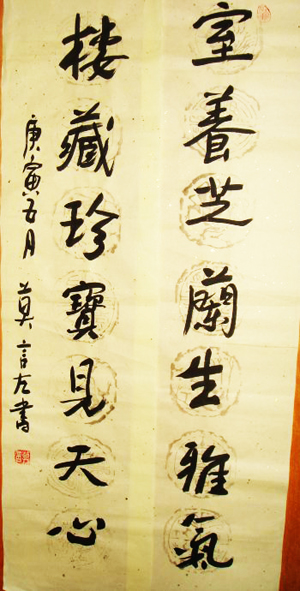 室養芝蘭生雅氣
樓藏珍寶見天心
庚寅五月
莫言左書